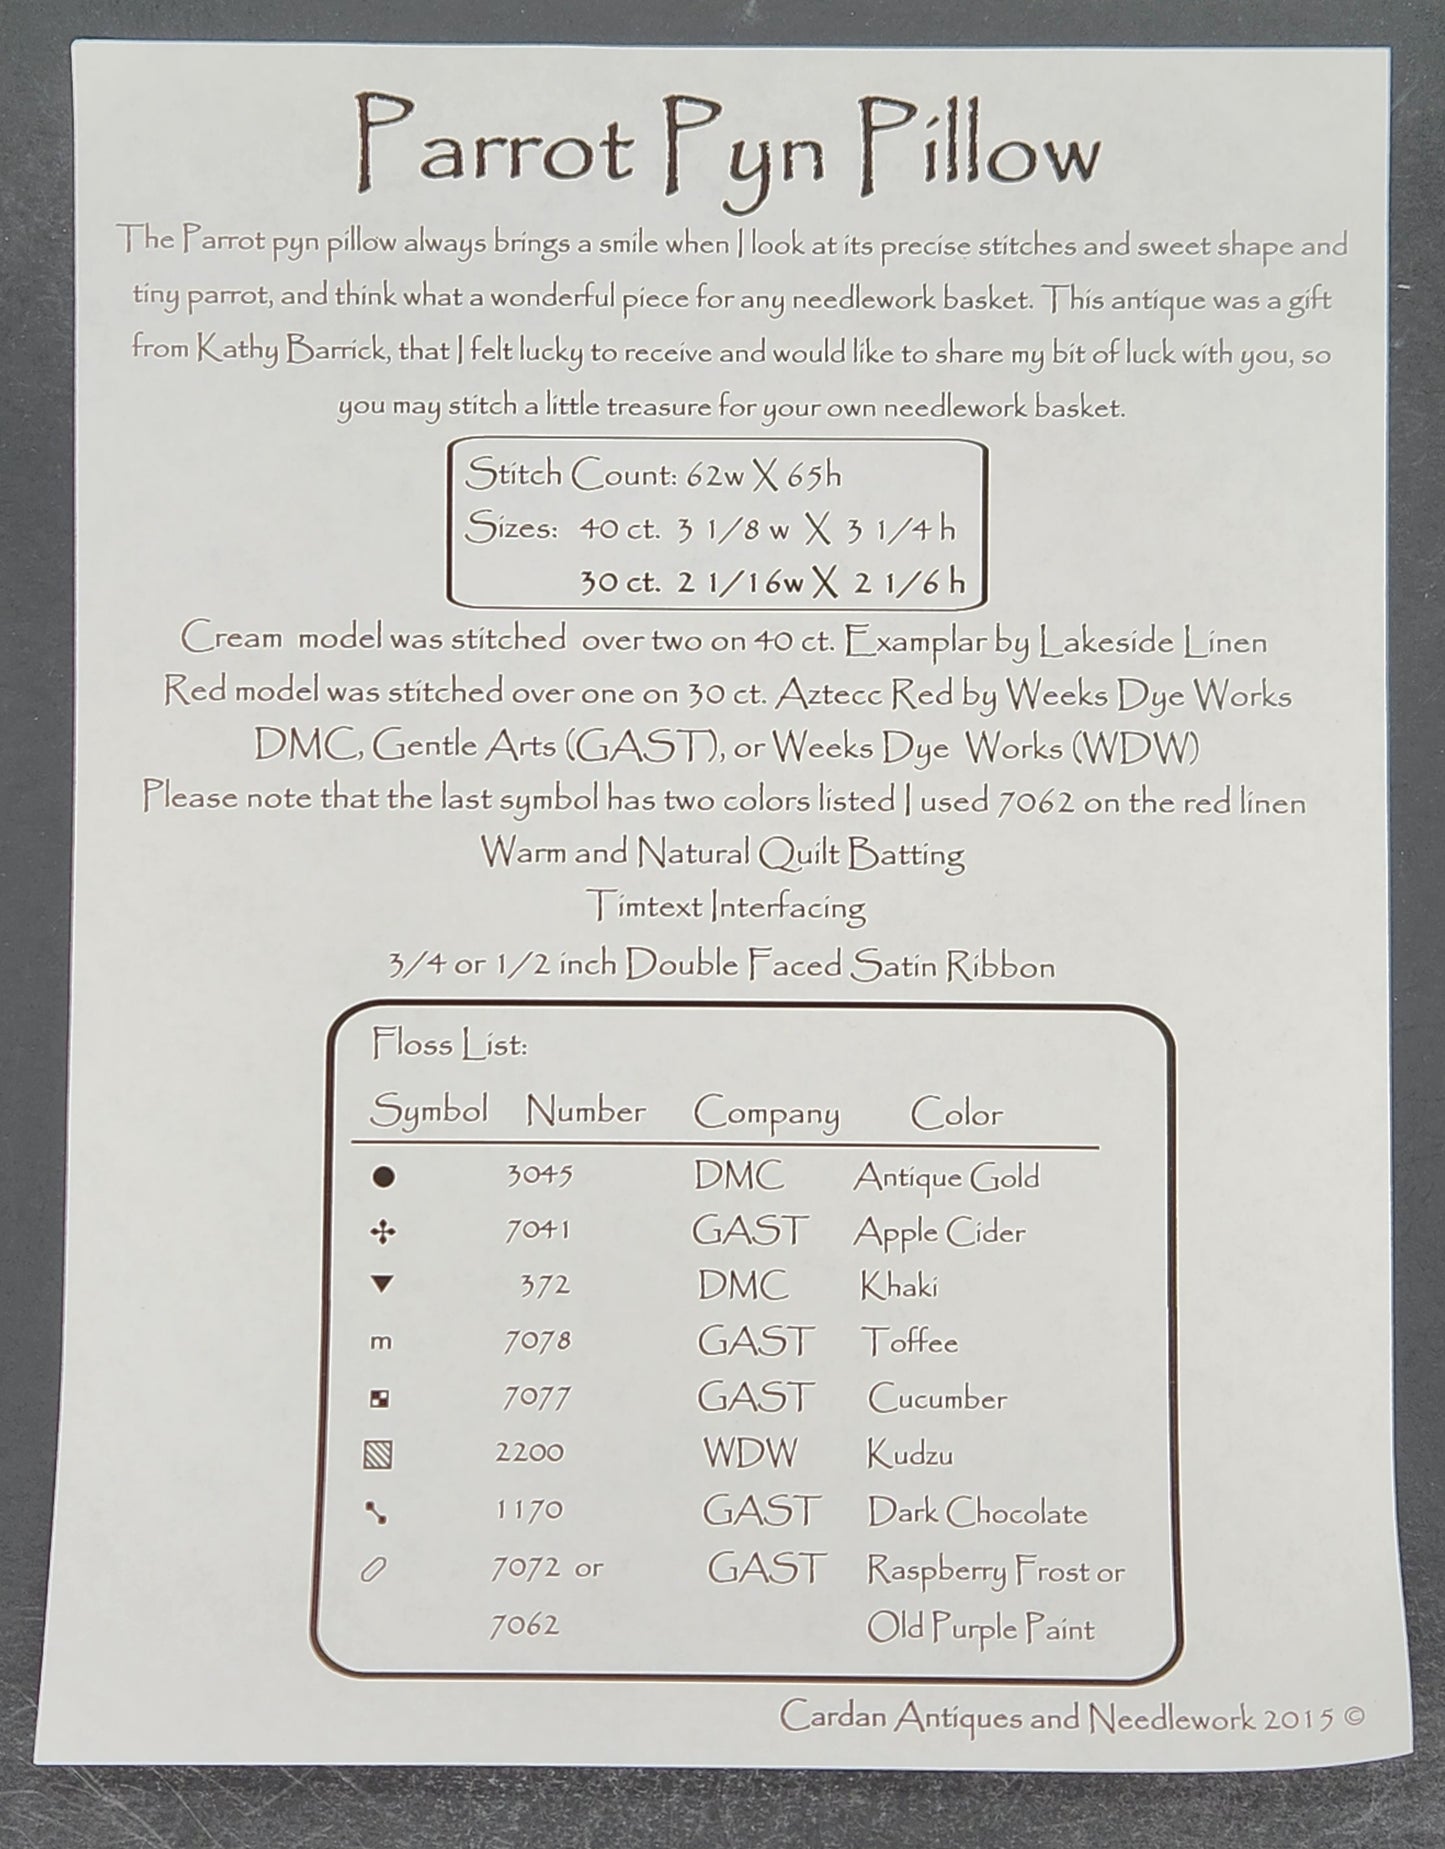 Parrot Pyn Pillow
The Parrot pyn pillow always brings a smile when I look at its precise stitches and sweet shape and
tiny parrot, and think what a wonderful piece for any needlework basket. This antique was a gift
from Kathy Barrick, that I felt lucky to receive and would like to share my bit of luck with you, so
you may stitch a little treasure for your own needlework basket.
Stitch Count: 62w X 65h
Sizes: 40 ct. 3 1/8 w X 3 1/4 h
30 ct. 2 1/16w X 2 1/6 h
Cream model was stitched over two on 40 ct. Examplar by Lakeside Linen
Red model was stitched over one on 30 ct. Aztecc Red by Weeks Dye Works
DMC, Gentle Arts (GAST), or Weeks Dye Works (WDW)
Please note that the last symbol has two colors listed I used 7062 on the red linen
Warm and Natural Quilt Batting
Timtext Interfacing
3/4 or 1/2 inch Double Faced Satin Ribbon
Floss List:
Symbol Number Company Color
3045 DMC Antique Gold
7041 GAST Apple Cider
372 DMC Khaki
m 7078 GAST Toffee
7077 GAST Cucumber
2200 WDW Kudzu
1170 GAST Dark Chocolate
7072 or GAST Raspberry Frost or
7062 Old Purple Paint
Cardan Antiques and Needlework 2015 ©